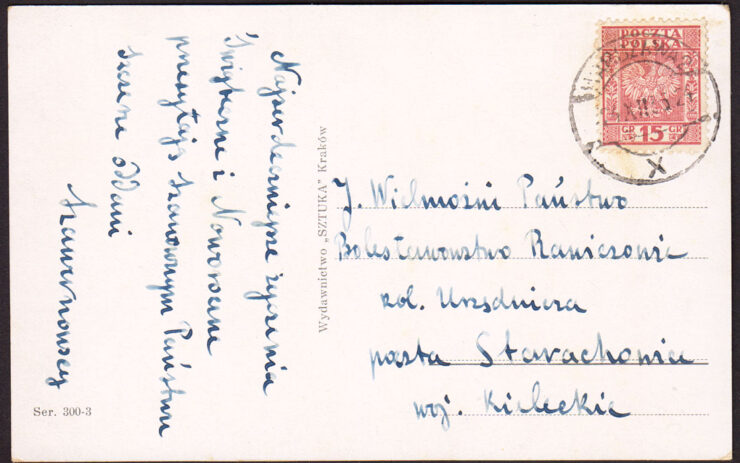 Najserdeczniejsze życzenia
Świąteczne i Noworoczne
przesyłają Szanownym Państwu
szczerze oddani
Wydawnictwo „SZTUKA” Kraków
Ser. 300-3
POCZTA
POLSKA
GR 15 GR
X
J. Wielmożni Państwo
Bolesławowstwo
kol. Urzędnicza
poczta Starachowice
woj. Kieleckie